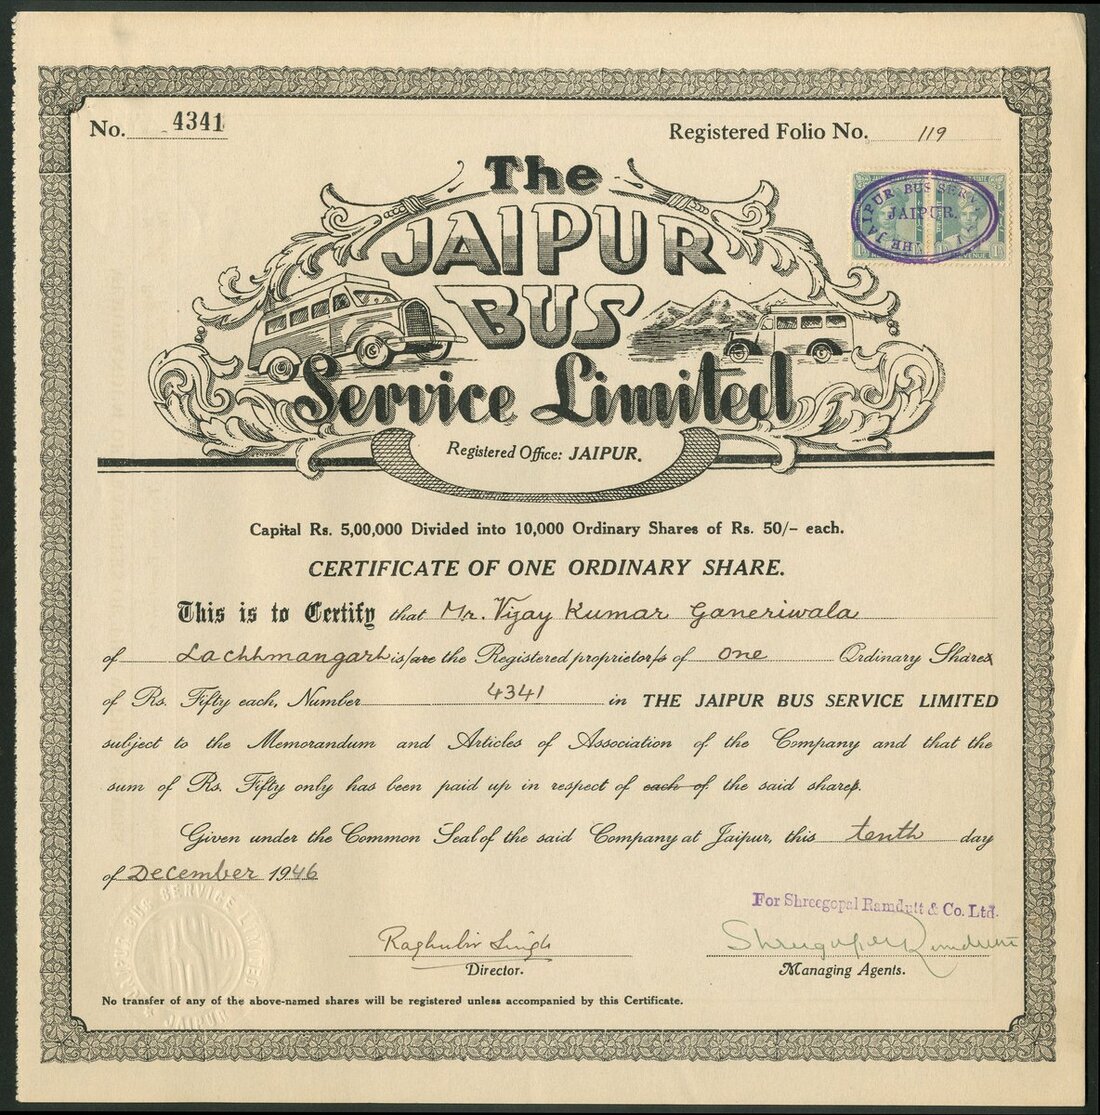 No. 4341
Registered Folio No. 119
THE JAIPUR BUS SERV
JAIPUR.
The
JAIPUR
BUS
Service Limited
Registered Office: JAIPUR.
Capital Rs. 5,00,000 Divided into 10,000 Ordinary Shares of Rs. 50/- each.
CERTIFICATE OF ONE ORDINARY SHARE.
This is to Certify that Mr. Vijay Kumar Ganeriwala
of Lachhmangarh is/are the Registered proprietor/s of one Ordinary Shares
of Rs. Fifty each, Number 4341 in THE JAIPUR BUS SERVICE LIMITED
subject to the Memorandum and Articles of Association of the Company and that the
sum of Rs. Fifty only has been paid up in respect of each of the said shares.
Given under the Common Seal of the said Company at Jaipur, this tenth day
of December 1946
JAIPUR BUS SERVICE LIMITED
JAIPUR
For Shreegopal Ramdutt & Co. Ltd.
Raghubir Singh
Shreegopal Ramdutt
Director.
Managing Agents.
No transfer of any of the above-named shares will be registered unless accompanied by this Certificate.